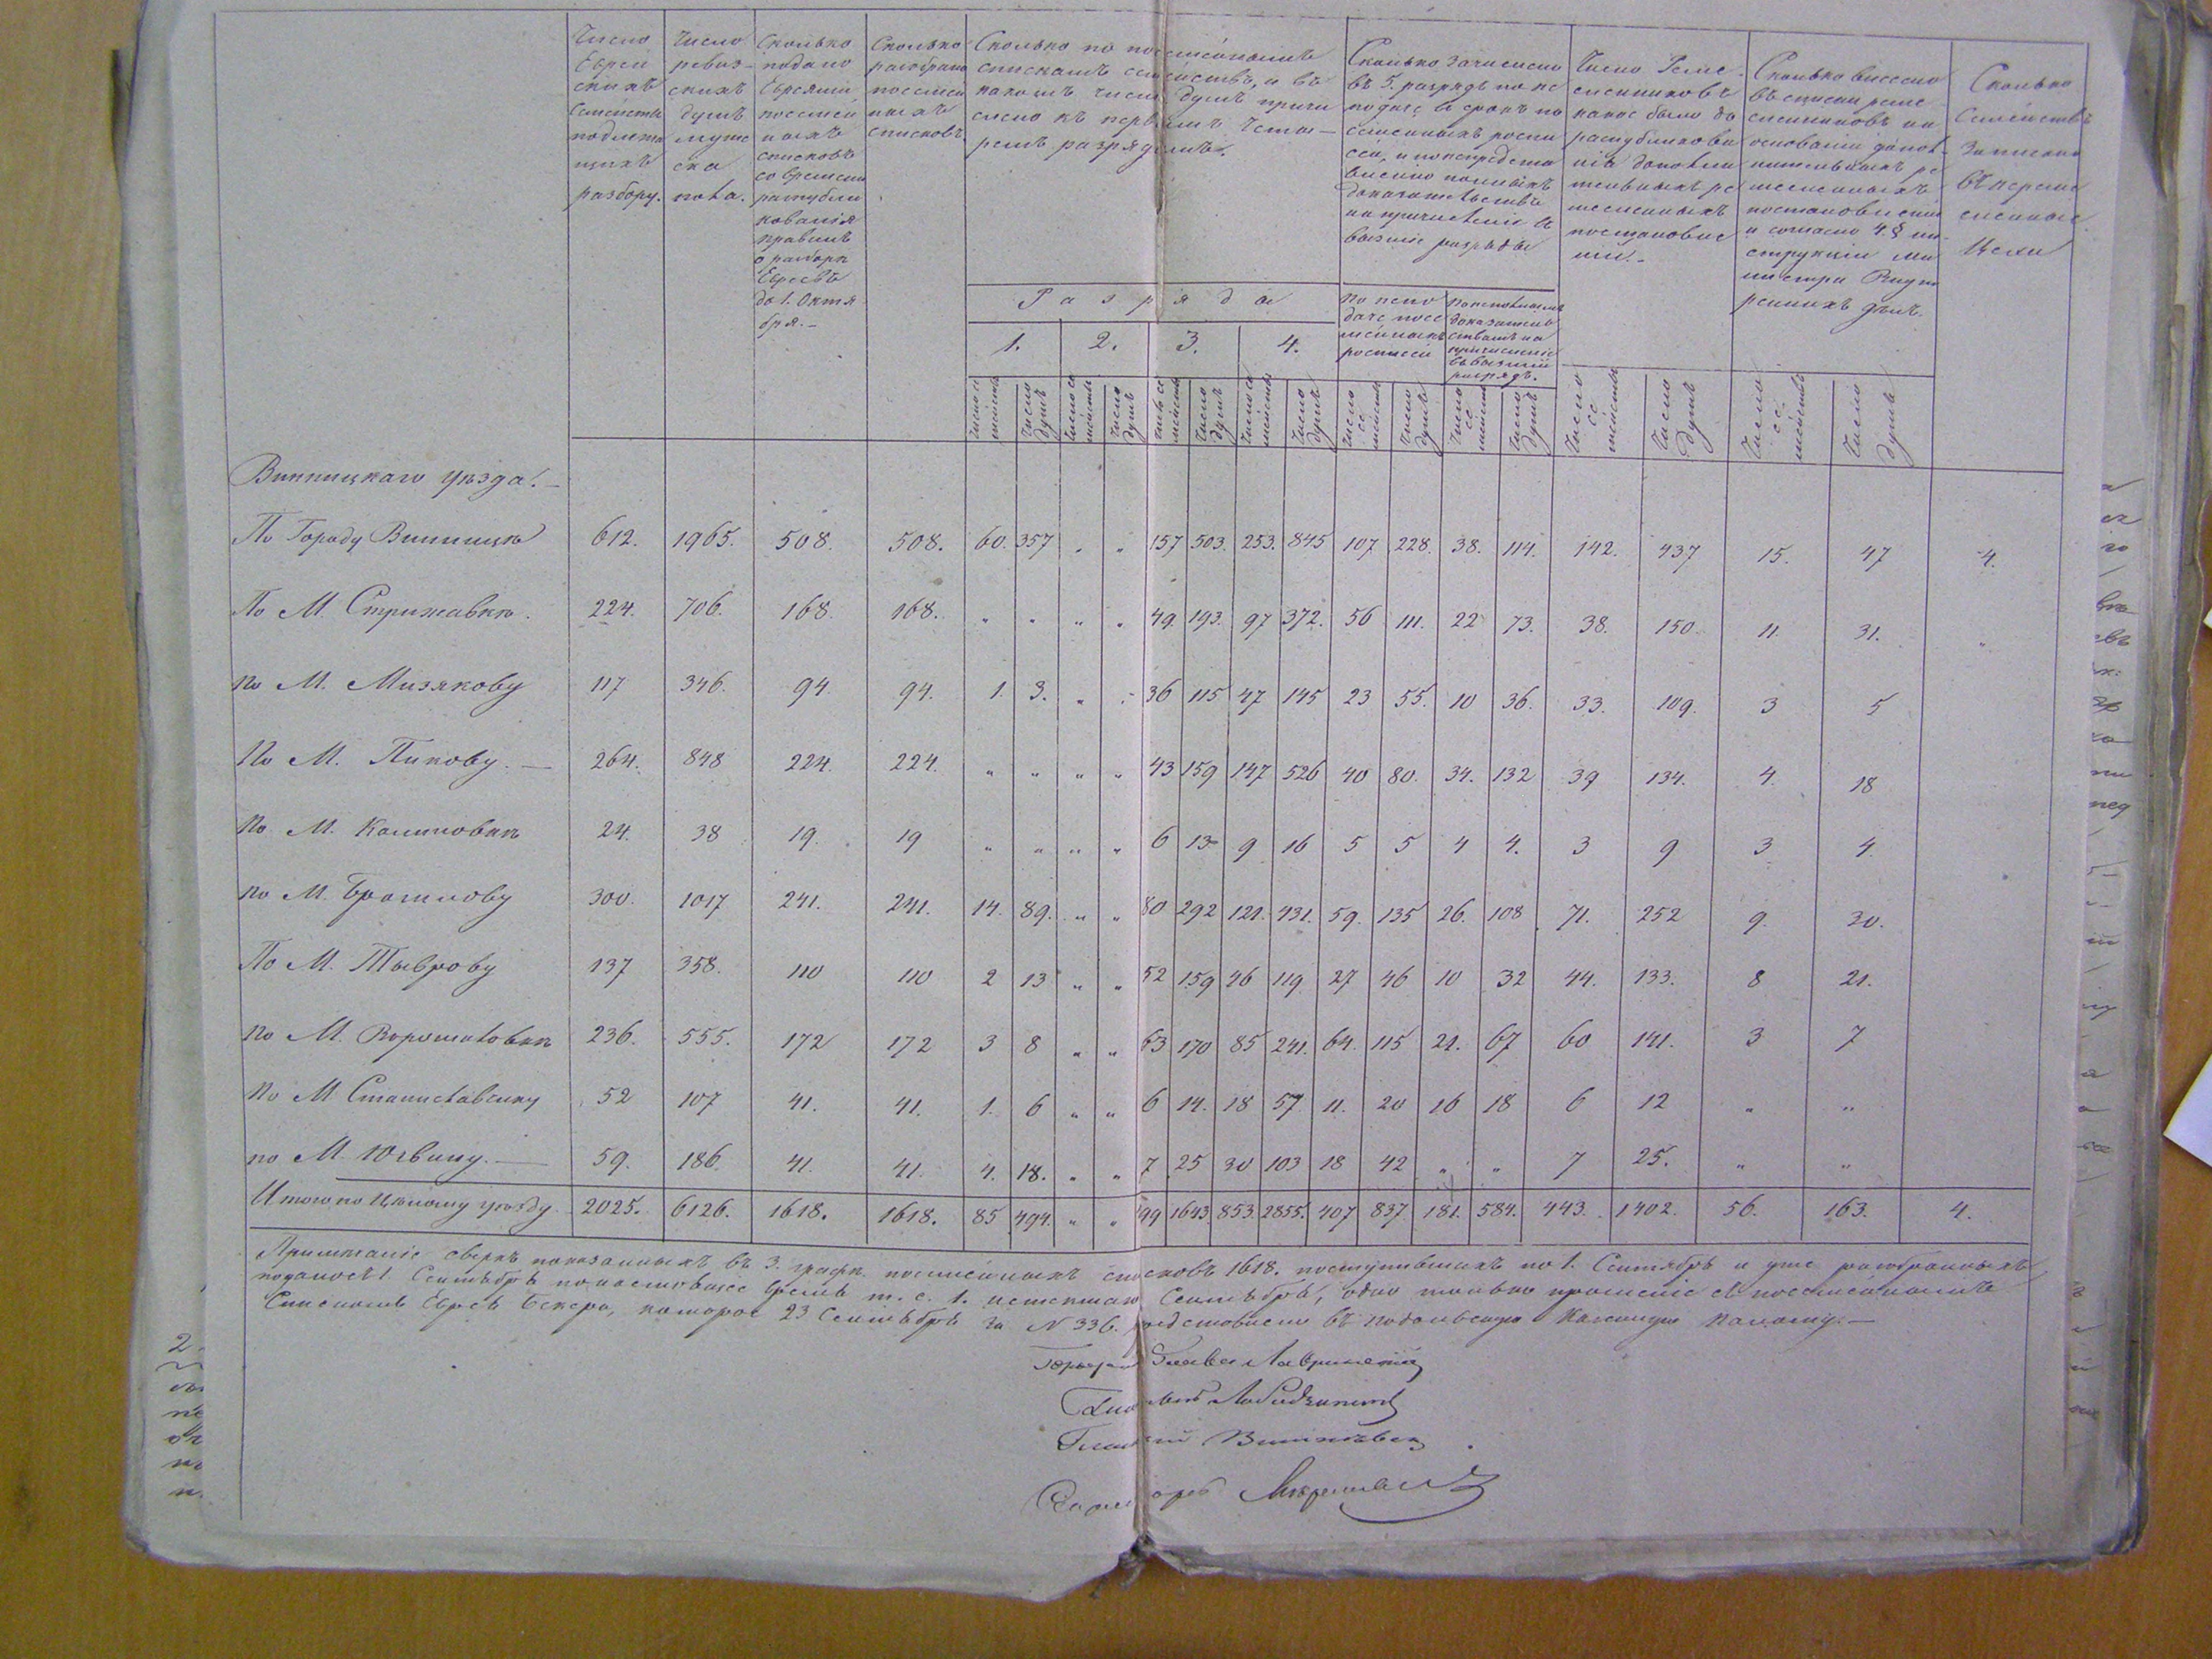 Число Еврейскихъ семействъ подлежащихъ разбору.
Число ревизскихъ душъ мужеска пола.
Сколько подано Евреями посемейныхъ списковъ со времени распубликованія правилъ о разборѣ Евреевъ до 1. Октября.–
Сколько разобрано посемейныхъ списковъ.
Сколько по посемейнымъ спискамъ семействъ, и въ какомъ числѣ душъ причислено къ первымъ четыремъ разрядамъ.
Сколько зачислено въ 5. разрядъ по не подачѣ въ срокъ посемейныхъ росписей, и по непредставленію полныхъ доказательствъ на причисленіе въ высшіе разряды
Число Ремесленниковъ какое было до распубликованія дополнительныхъ ремесленныхъ постановленій.–
Сколько внесено въ списки ремесленниковъ на основаніи дополнительныхъ ремесленныхъ постановленій и согласно 4. § инструкціи Министра Внутреннихъ дѣлъ.
Сколько Семействъ записано въ ремесленные Цехи
Разряды
1. 2. 3. 4.
По неподачѣ посемейныхъ росписей
По неполнымъ доказательствамъ на причисленіе въ высшій разрядъ.
Число семействъ Число душъ Число семействъ Число душъ Число семействъ Число душъ Число семействъ Число душъ Число семействъ Число душъ Число семействъ Число душъ Число семействъ Число душъ Число семействъ Число душъ
Винницкаго уѣзда.–
По Городу Винницѣ 612. 1965. 508. 508. 60. 357 " " 157 503. 253. 845 107 228. 38. 114. 142. 437 15. 47 4.
По М. Стрижавкѣ. 224. 706. 168 168. " " " " 49. 193. 97 372. 56 111. 22 73. 38. 150. 11. 31. "
По М. Мизякову 117 346. 94. 94. 1. 3. " " 36 115 47 145 23 55. 10 36. 33. 109. 3 5
По М. Пикову.– 264. 848 224. 224. " " " " 43 159 147 526 40 80. 34. 132 39 134. 4. 18
По М. Калиновкѣ 24. 38 19. 19 " " " " 6 13 9 16 5 5 4 4. 3 9 3 4.
По М. Браилову 300. 1017 241. 241. 14. 89. " " 80 292 121. 431. 59. 135 26. 108 71. 252 9. 30.
По М. Тыврову 137 358. 110 110 2 13 " " 52 159 46 119 27 46 10 32 44. 133. 8 21.
По М. Ворошиловкѣ 236. 555. 172 172 3 8 " " 63 170 85 241. 64. 115 21. 67 60 141. 3 7
По М Станиславчику 52 107 41. 41. 1. 6 " " 6 14. 18 57 11. 20 16 18 6 12 " "
по М Югвину.– 59. 186. 41. 41. 4. 18. " " 7 25 30 103 18 42 " " 7 25. " "
Итого по Цѣлому уѣзду 2025. 6126. 1618. 1618. 85 494. " " 99 1643. 853. 2855. 407 837 181. 584. 443. 1402. 56. 163. 4.
Примѣчаніе сверхъ показанныхъ въ 3. графѣ посемейныхъ списковъ 1618. поступившихъ по 1. Сентября и уже разобранныхъ
подано съ 1 Сентября по настоящее время т. е. 1. истекшаго Сентября, одно только прошеніе съ посемейнымъ
Спискомъ Еврея Бекера, которое 23 Сентября за № 336. представлено въ Подольскую Казенную Палату.–
Глава
Гласный
Гласный